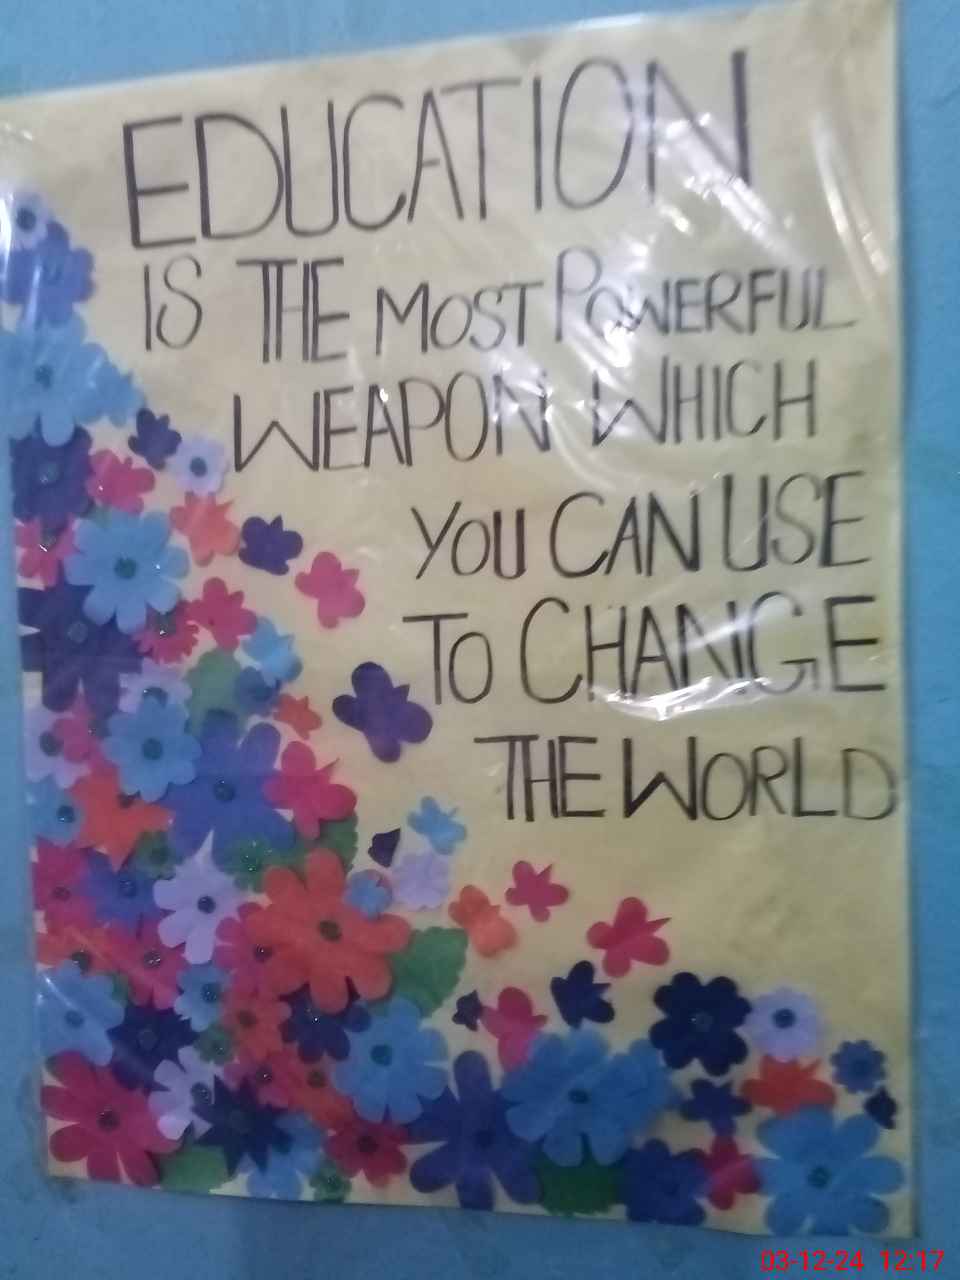 EDUCATION
IS THE MOST POWERFUL
WEAPON WHICH
YOU CAN USE
TO CHANGE
THE WORLD
03-12-24 12:17